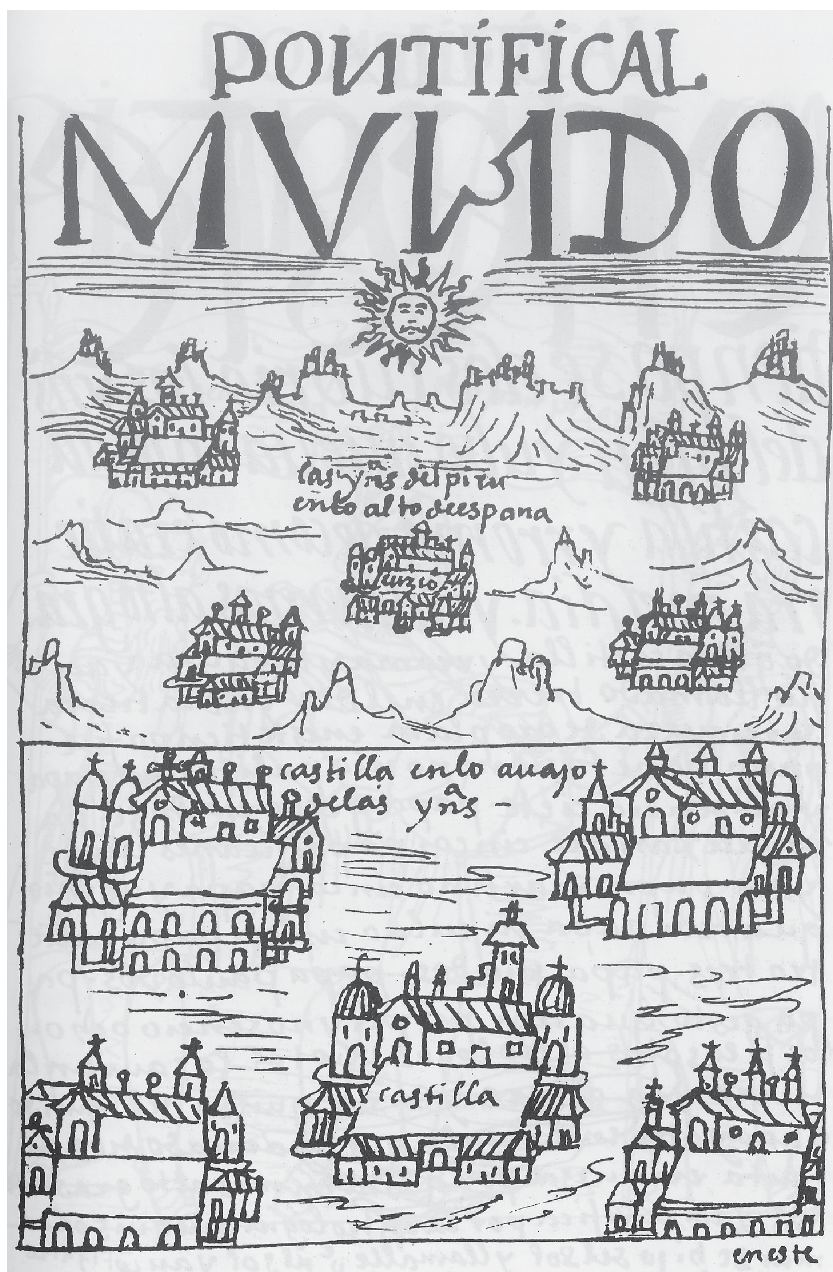 PONTIFICAL
MVNDO
las yns del piru
en lo alto de españa
cuzco
castilla en lo auajo
de las yns -
castilla
en este